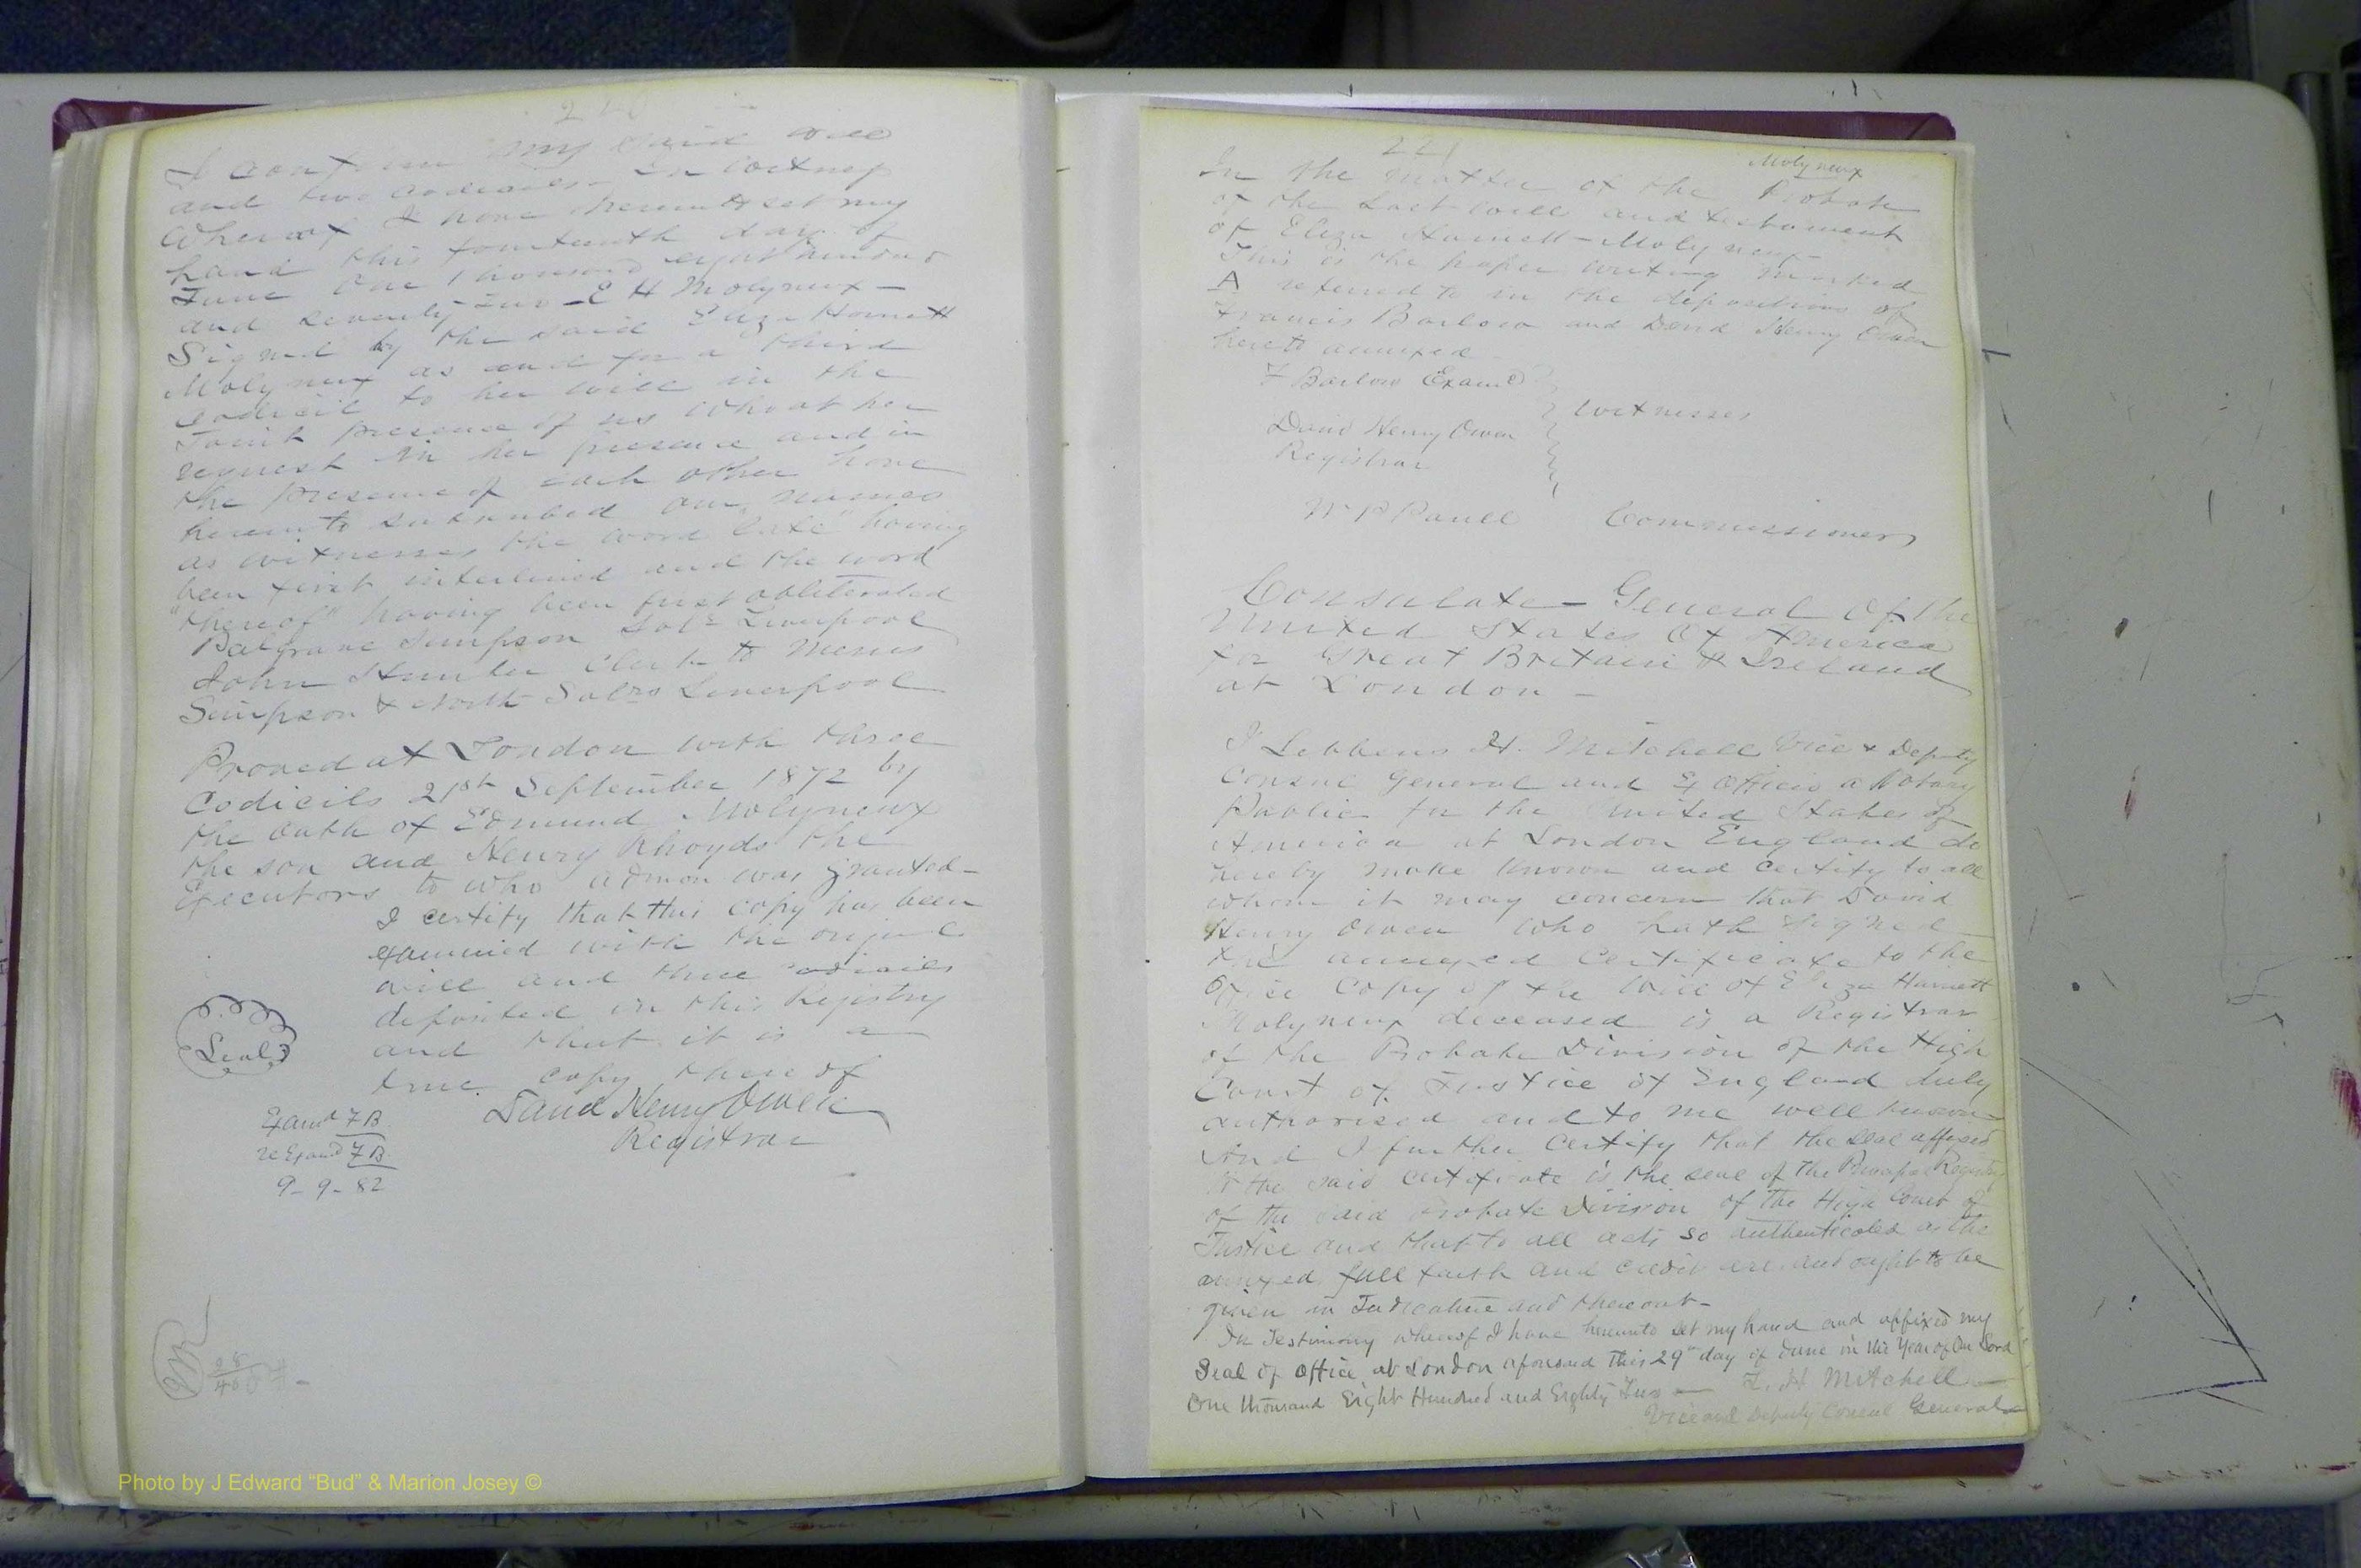 220
I confirm my said will
and two codicils - In witness
Whereof I have hereunto set my
hand this fourteenth day of
June One thousand eight hundred
and seventy two - E H Molyneux -
Signed by the said Eliza Harriett
Molyneux as and for a third
codicil to her will in the
Joint presence of us who at her
request in her presence and in
the presence of each other have
hereunto subscribed our names
as witnesses the word "late" having
been first interlined and the word
"thereof" having been first obliterated
Palgrave Simpson Solr Liverpool
John Hunter Clerk to Messrs
Simpson & North Solrs Liverpool
Proved at London with three
Codicils 21st September 1872 by
the Oath of Edmund Molyneux
the son and Henry Rhoyds the
Executors to who admon was granted -
I certify that this copy has been
examined with the original
will and three codicils
deposited in this Registry
and that it is a
true copy thereof
Seal
David Henry Owen
Registrar
Examd FB
re Examd FB
9-9-82
221
Molyneux
In the matter of the Probate
of the Last will and testament
of Eliza Harriett Molyneux -
This is the paper writing marked
A referred to in the depositions of
Francis Barlow and David Henry Owen
hereto annexed
F Barlow Examr
Witnesses
David Henry Owen
Registrar
Commissioners
Consulate - General Of the
United States Of America
for Great Britain & Ireland
at London -
I Lebbens H. Mitchell Vice & Deputy
Consul General and Ex Officio a Notary
Public for the United States of
America at London England do
hereby make known and certify to all
whom it may concern that David
Henry Owen who hath Signed
the annexed Certificate to the
Office Copy of the Will of Eliza Harriett
Molyneux deceased is a Registrar
of the Probate Division of the High
Court of Justice of England duly
authorised and to me well known
And I further Certify that the Seal affixed
to the said Certificate is the seal of the Principal Registry
of the said Probate Division of the High Court of
Justice and that to all acts so authenticated as the
annexed full faith and credit are and ought to be
given in Judicature and thereout -
In Testimony whereof I have hereunto set my hand and affixed my
Seal of Office at London aforesaid this 29th day of June in the Year of Our Lord
One thousand Eight Hundred and Eighty Two - L. H Mitchell -
Vice and Deputy Consul General
Photo by J Edward "Bud" & Marion Josey ©